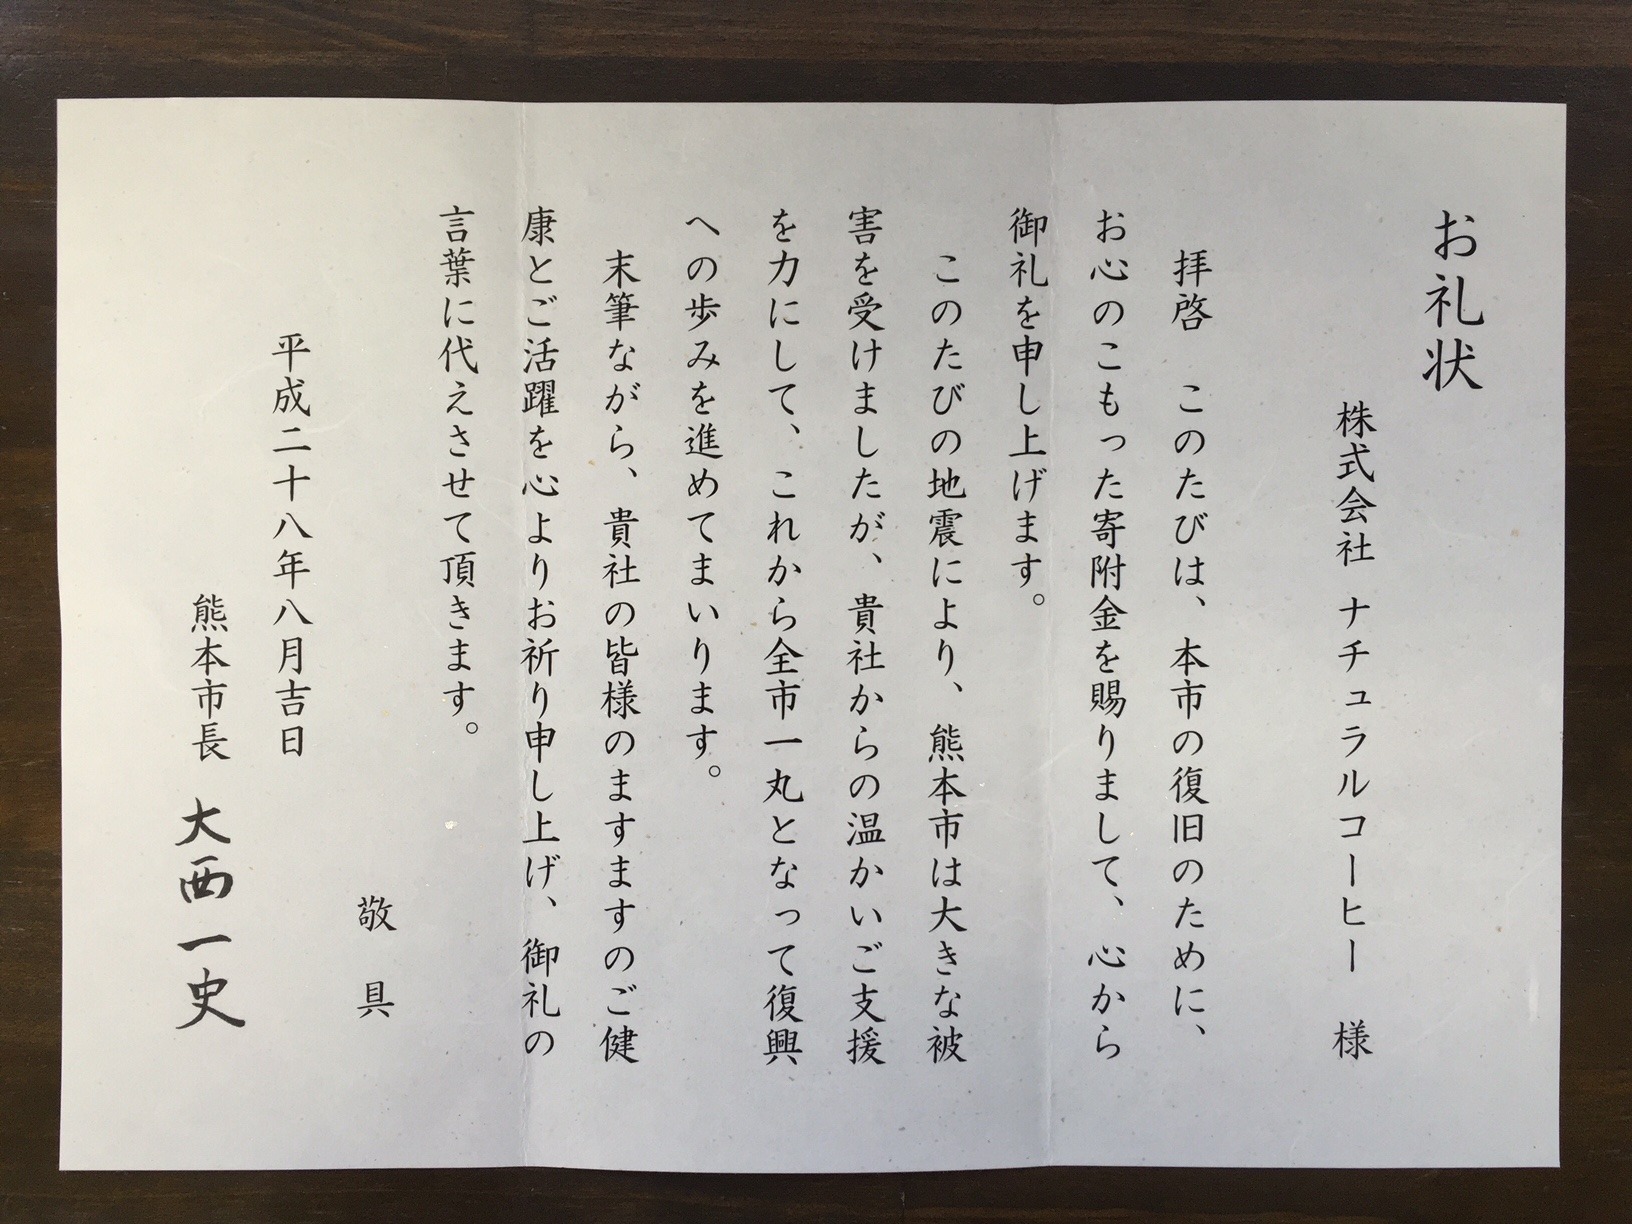 お礼状
株式会社 ナチュラルコーヒー 様
拝啓 このたびは、本市の復旧のために、
お心のこもった寄附金を賜りまして、心から
御礼を申し上げます。
このたびの地震により、熊本市は大きな被
害を受けましたが、貴社からの温かいご支援
を力にして、これから全市一丸となって復興
への歩みを進めてまいります。
末筆ながら、貴社の皆様のますますのご健
康とご活躍を心よりお祈り申し上げ、御礼の
言葉に代えさせて頂きます。
敬 具
平成二十八年八月吉日
熊本市長 大西一史